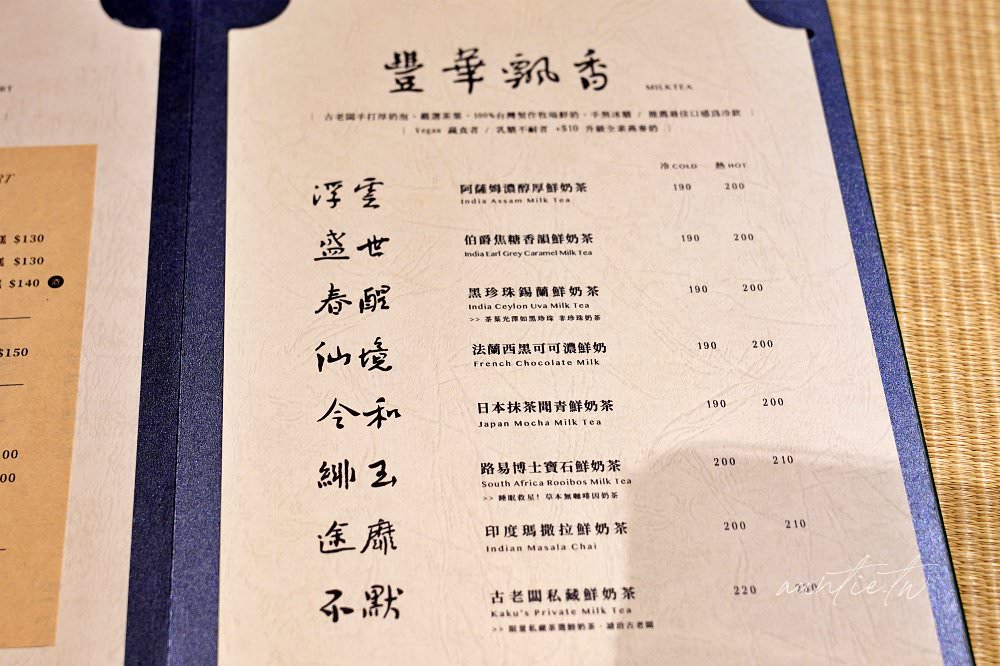 豐華飄香 MILKTEA
| 古老闆手打厚奶泡、嚴選茶葉、100%台灣製作牧場鮮奶、手熬冰糖 / 推薦最佳口感為冷飲 |
| Vegan 蔬食者 / 乳糖不耐者 +$10 升級全素燕麥奶 |
冷 COLD 熱 HOT
浮雲 阿薩姆濃醇厚鮮奶茶 190 200
India Assam Milk Tea
盛世 伯爵焦糖香韻鮮奶茶 190 200
India Earl Grey Caramel Milk Tea
春醒 黑珍珠錫蘭鮮奶茶 190 200
India Ceylon Uva Milk Tea
>> 茶葉光澤如黑珍珠 非珍珠奶茶
仙境 法蘭西黑可可濃鮮奶 190 200
French Chocolate Milk
令和 日本抹茶聞青鮮奶茶 190 200
Japan Mocha Milk Tea
緋玉 路易博士寶石鮮奶茶 200 210
South Africa Rooibos Milk Tea
>> 睡眠救星! 草本無咖啡因奶茶
途靡 印度瑪撒拉鮮奶茶 200 210
Indian Masala Chai
不默 古老闆私藏鮮奶茶 220
Kaku's Private Milk Tea
>> 限量私藏茶選鮮奶茶，請洽古老闆
$130
$130
$140
$150
00
00
auntie.tw